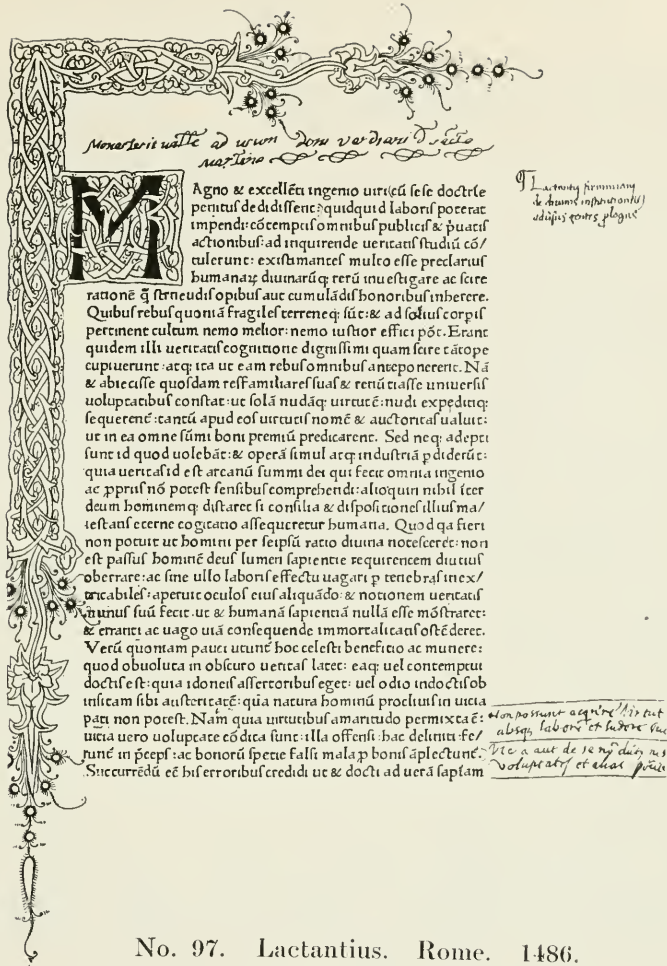 Monasterii ad usum Domi
Martino
MAgno & excellēti ingenio uiri cū sese doctrīe
penitus dedidissent: quidquid laboris poterat
impendi: cōtemptis omnibus publicis & puatis
actionibus: ad inquirende ueritatis studiū cō/
tulerunt: existimantes multo esse preclarius
humanaꝝ diuinarūq; rerū inuestigare ac scire
rationē q̄ struendis opibus aut cumulādis honoribus inherere.
Quibus rebus quoniā fragiles terreneq; sūt: & ad solius corpis
pertinent cultum nemo melior: nemo iustior effici pōt. Erant
quidem illi ueritatis cognitione dignissimi quam scire tātope
cupiuerunt: atq; ita ut eam rebus omnibus anteponerent. Nā
& abiecisse quosdam res familiares suas & renūtiasse uniuersis
uoluptatibus constat: ut solā nudāq; uirtutē: nudi expeditiq;
sequerent̄: tantū apud eos uirtutis nomē & auctoritas ualuit:
ut in ea omne sūmi boni premiū predicarent. Sed neq; adepti
sunt id quod uolebāt: & operā simul atq; industriā pdiderūt:
quia ueritas id est arcanū summi dei qui fecit omnia ingenio
ac ppriis nō potest sensibus comprehendi: alioquin nihil iter
deum hominemq; distaret si consilia & dispositiones illius ma/
iestatis eterne cogitatio assequeretur humana. Quod qa fieri
non potuit ut homini per seipsū ratio diuina notesceret: non
est passus hominē deus lumen sapientie requirentem diutius
oberrare: ac sine ullo laboris effectu uagari p tenebras inex/
tricabiles: aperuit oculos eius aliquādo: & notionem ueritatis
munus suū fecit. ut & humanā sapientiā nullā esse mōstraret:
& erranti ac uago uiā consequende immortalitatis ostēderet.
Verū quoniam pauci utunt̄ hoc celesti beneficio ac munere:
quod obuoluta in obscuro ueritas latet: eaq; uel contemptui
doctis est: quia idoneis assertoribus eget: uel odio indoctis ob
insitam sibi austeritatē: quā natura hominū procliuis in uicia
pati non potest. Nam quia uirtutibus amaritudo permixta ē:
uicia uero uoluptate cōdita sunt: illa offensi: hac deliniti: fe/
runt̄ in p̄ceps: ac bonorū specie falsi mala p bonis āplectunt̄.
Succurrēdū eē his erroribus credidi ut & docti ad uerā sapīam
Non possunt
absq; labore et sudore
aut de
voluptatis et
No. 97. Lactantius. Rome. 1486.